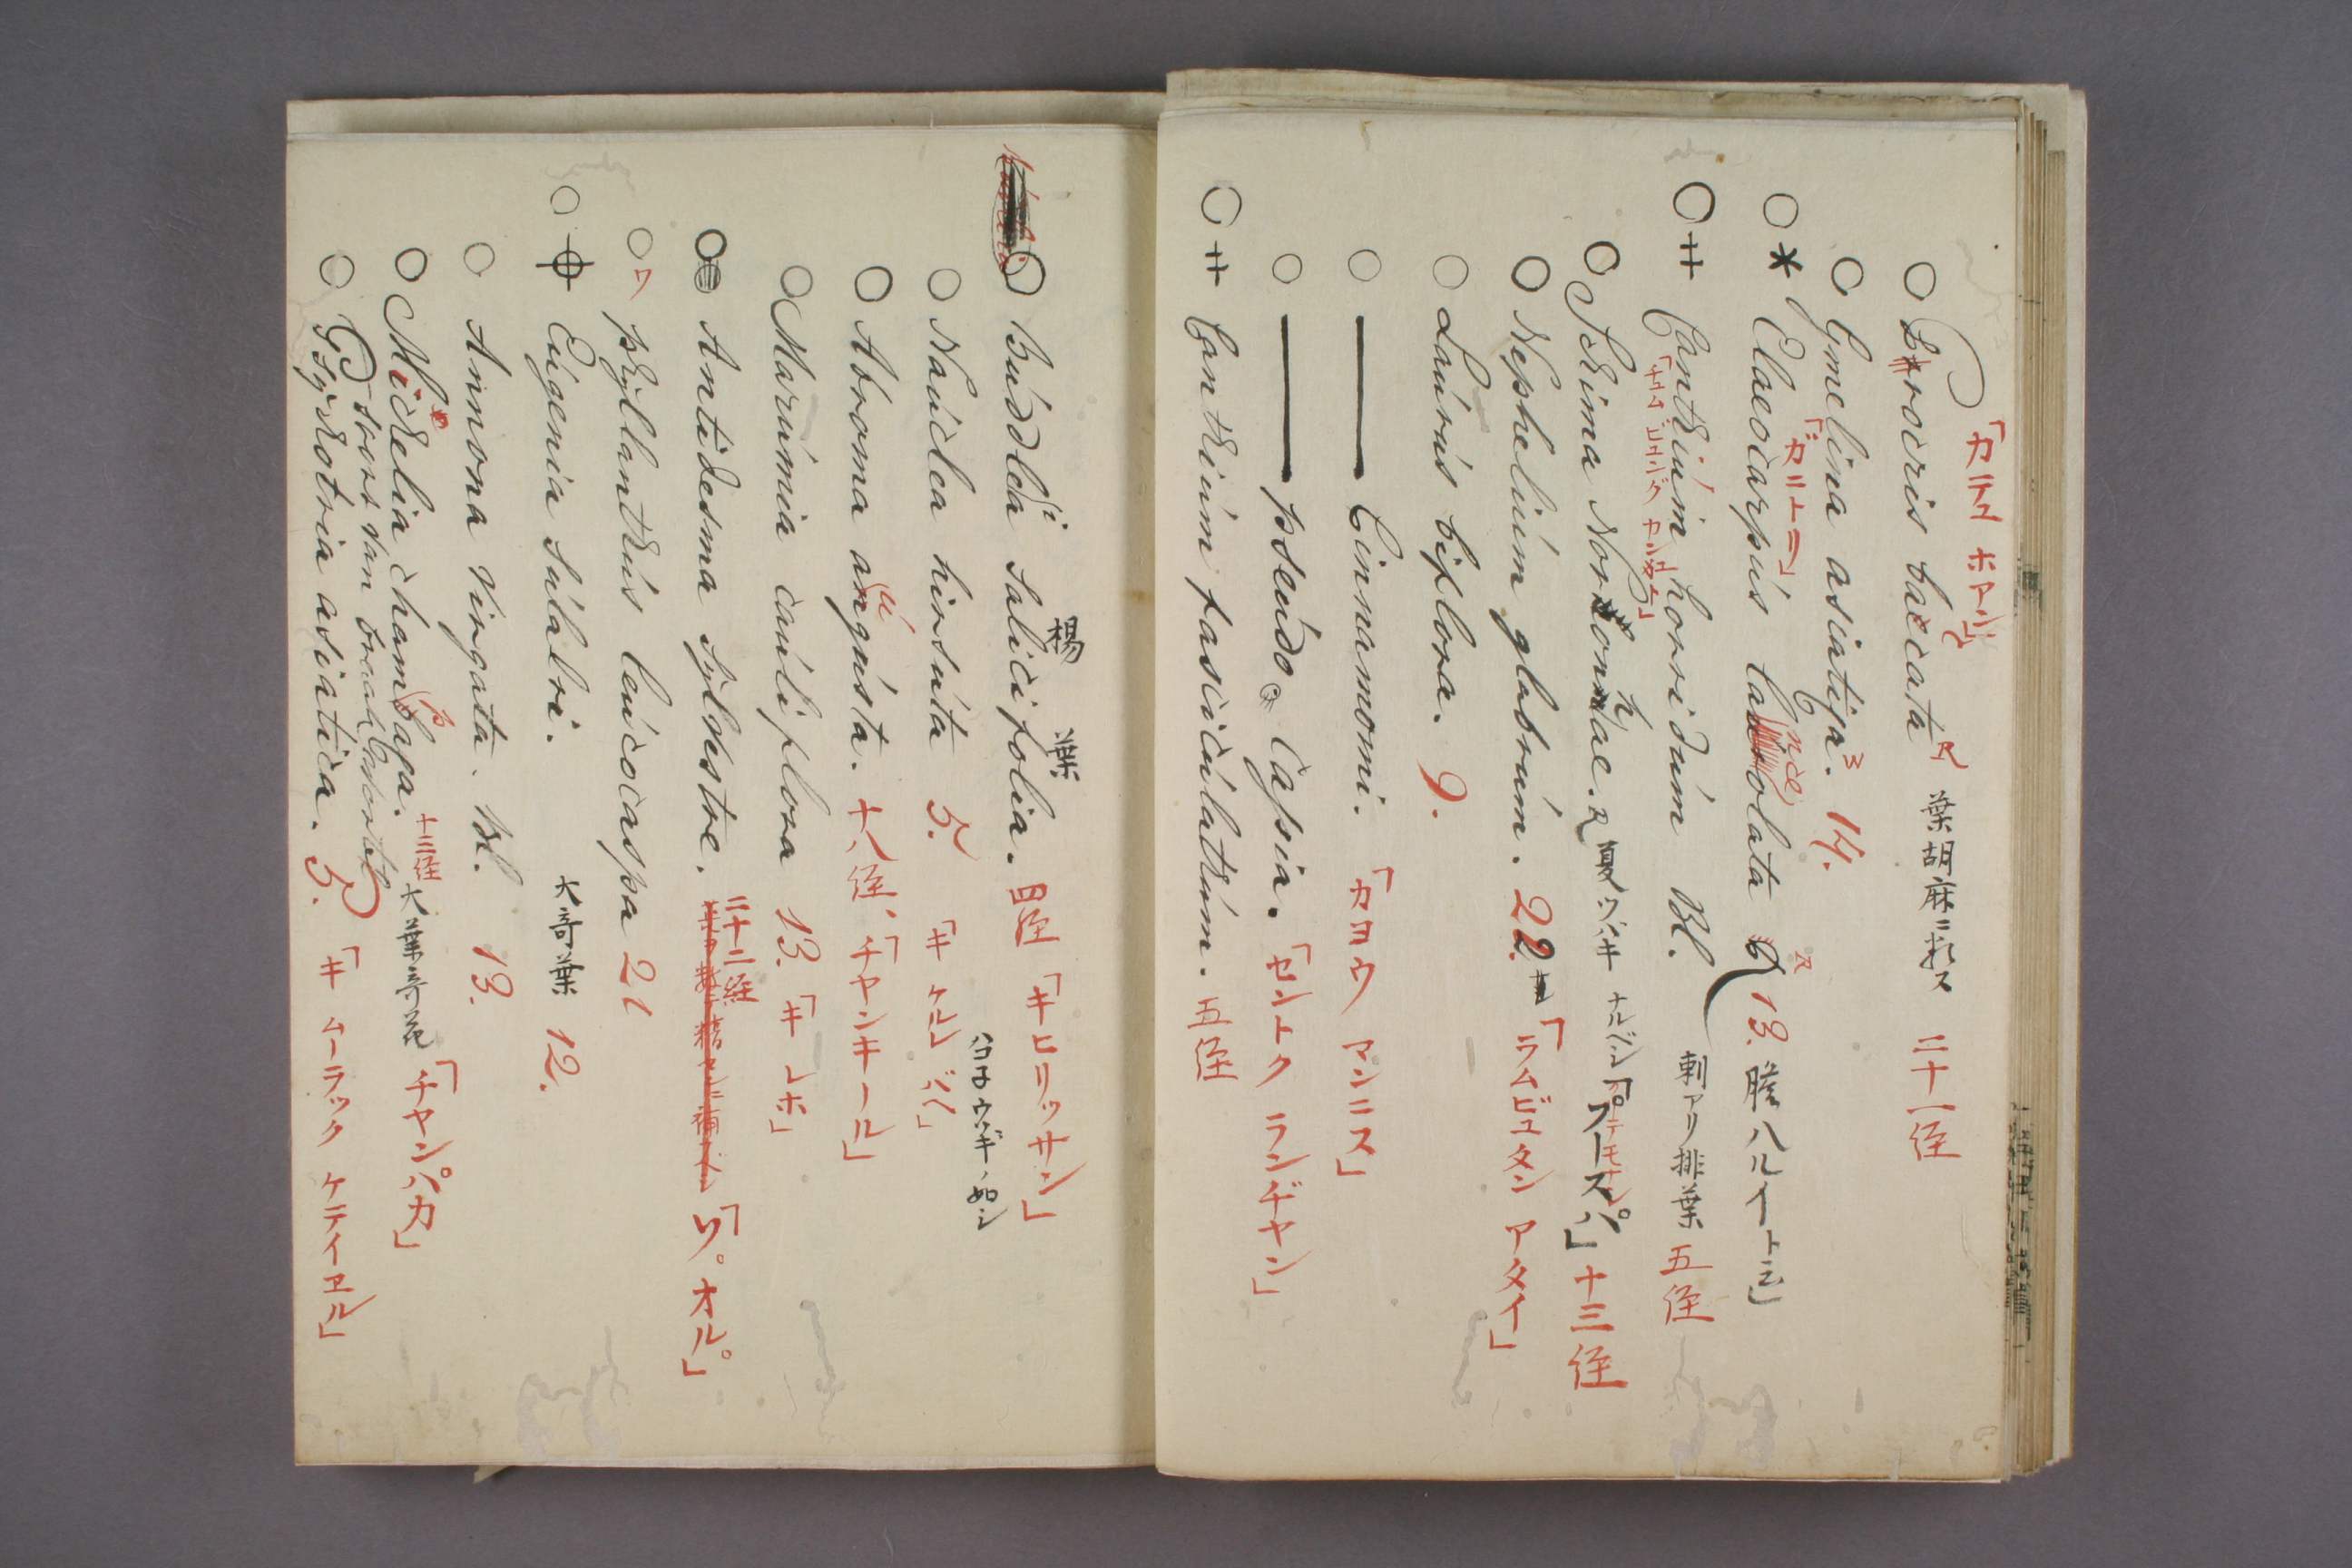 「カテュ ホアン」
○ Procris baccata 葉胡麻ニ類ス 二十一徑
○ Gmelina asiatica. 14.
「ガニトリ」
○ * Elaeocarpus lanceolata 13. 膽八ルイト云」
○ ⧺ Canthium horridum Bl. 刺アリ排葉 五徑
○ Schima Noronhae. 夏ツバキ ナルベシ「プースパ」十三徑
○ Nephelium glabrum. 22. 「ラムビュタン アタイ」
○ Laurus biflora. 9.
○ ―― Cinnamomi. 「カヨウ マンニス」
○ ―― pseudo Cassia. 「セントク ランヂヤン」
○ ⧺ Canthium fasciculatum. 五徑
楊 葉
○ Buddlea salicifolia. 四徑 「キヒリッサン」
ハコネウツギノ如シ
○ Nauclea hirsuta 5. 「キ ケルバヘ」
○ Abroma augusta. 十八徑、「チヤンキール」
○ Marumia cauliflora 13. 「キ レホ」
○ Antidesma sylvestre. 二十二經 「ツ。オル。」
○ワ phyllanthus leucocarpa 21
○ Eugenia salabri. 大奇葉 12.
○ Annona Virgata. Bl. 13.
○ Michelia champaga. 十三徑 大葉奇花 「チヤンパカ」
soort van
○ Gyrotria asiatica. 5. 「キ ムーラック ケテイヱル」